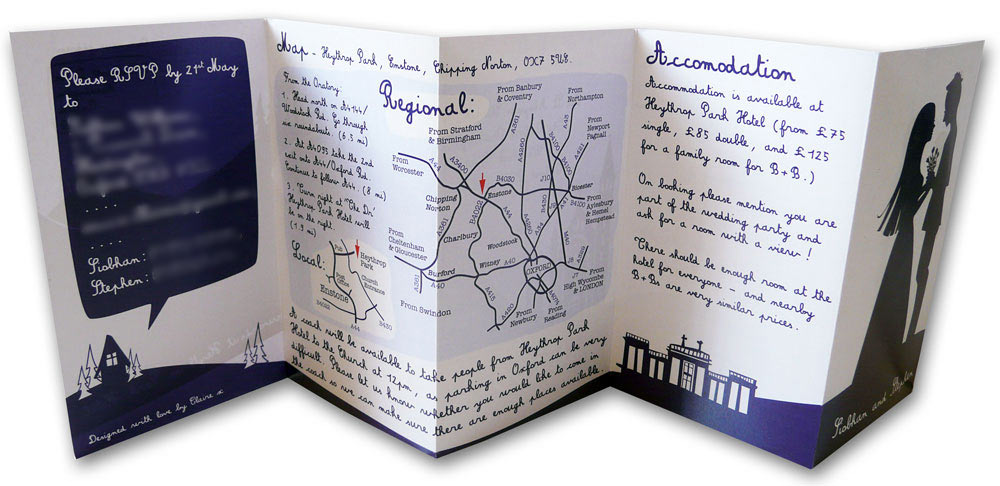 Please RSVP by 21st May
to
. . . .
. . . .
Siobhan:
Stephen:
Designed with love by Claire x
Map - Heythrop Park, Enstone, Chipping Norton, OX7 5UE.
From the Oratory:
1. Head north on A4144/
Woodstock Rd. Go through
six roundabouts. (6.3 mi)
2. At A4095 take the 2nd
exit onto A44/Oxford Rd.
Continue to follow A44. (8 mi)
3. Turn right at "The Dr."
Heythrop Park Hotel will
be on the right
(1.9 mi)
Regional:
From Banbury
& Coventry
From
Northampton
From Stratford
& Birmingham
From
Newport
Pagnall
From
Worcester
A44
A3400
A361
A4260
A43
B4100
A421
B4030
J10
Bicester
Enstone
Chipping
Norton
B4022
A44
B430
J9
B4100
From
Aylesbury
& Hemel
Hempstead
A361
Charlbury
A34
M40
From
Cheltenham
& Gloucester
Woodstock
Witney
A40
Burford
A40
OXFORD
J8
From
High Wycombe
& LONDON
A361
A415
A420
A4074
From Swindon
From
Newbury
From
Reading
Local:
Pub
Heythrop
Park
Post
Office
Church
Entrance
Enstone
B4022
A44
B430
A coach will be available to take people from Heythrop Park
Hotel to the Church at 12pm, as parking in Oxford can be very
difficult. Please let us know whether you would like to come in
the coach so we can make sure there are enough places available.
Accomodation
Accommodation is available at
Heythrop Park Hotel (from £75
single, £85 double, and £125
for a family room for B+B.)
On booking please mention you are
part of the wedding party and
ask for a room with a view!
There should be enough room at the
hotel for everyone - and nearby
B+Bs are very similar prices.
Siobhan and Stephen